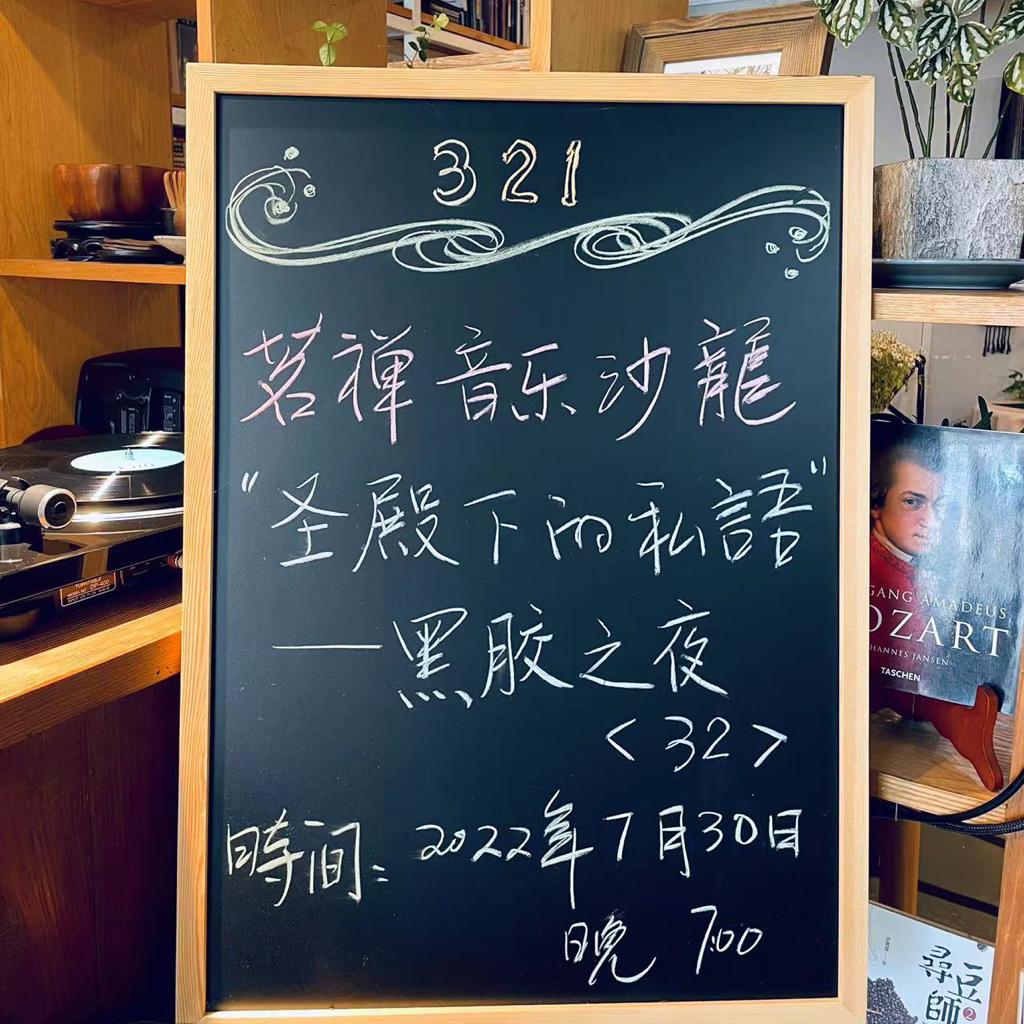 321
茗禅音乐沙龍
“圣殿下的私語”
——黑胶之夜
<32>
時间：2022年7月30日
晚 7:00
TURNTABLE
DP-400
GANG AMADEUS
OZART
HANNES JANSEN
TASCHEN
尋豆師
2